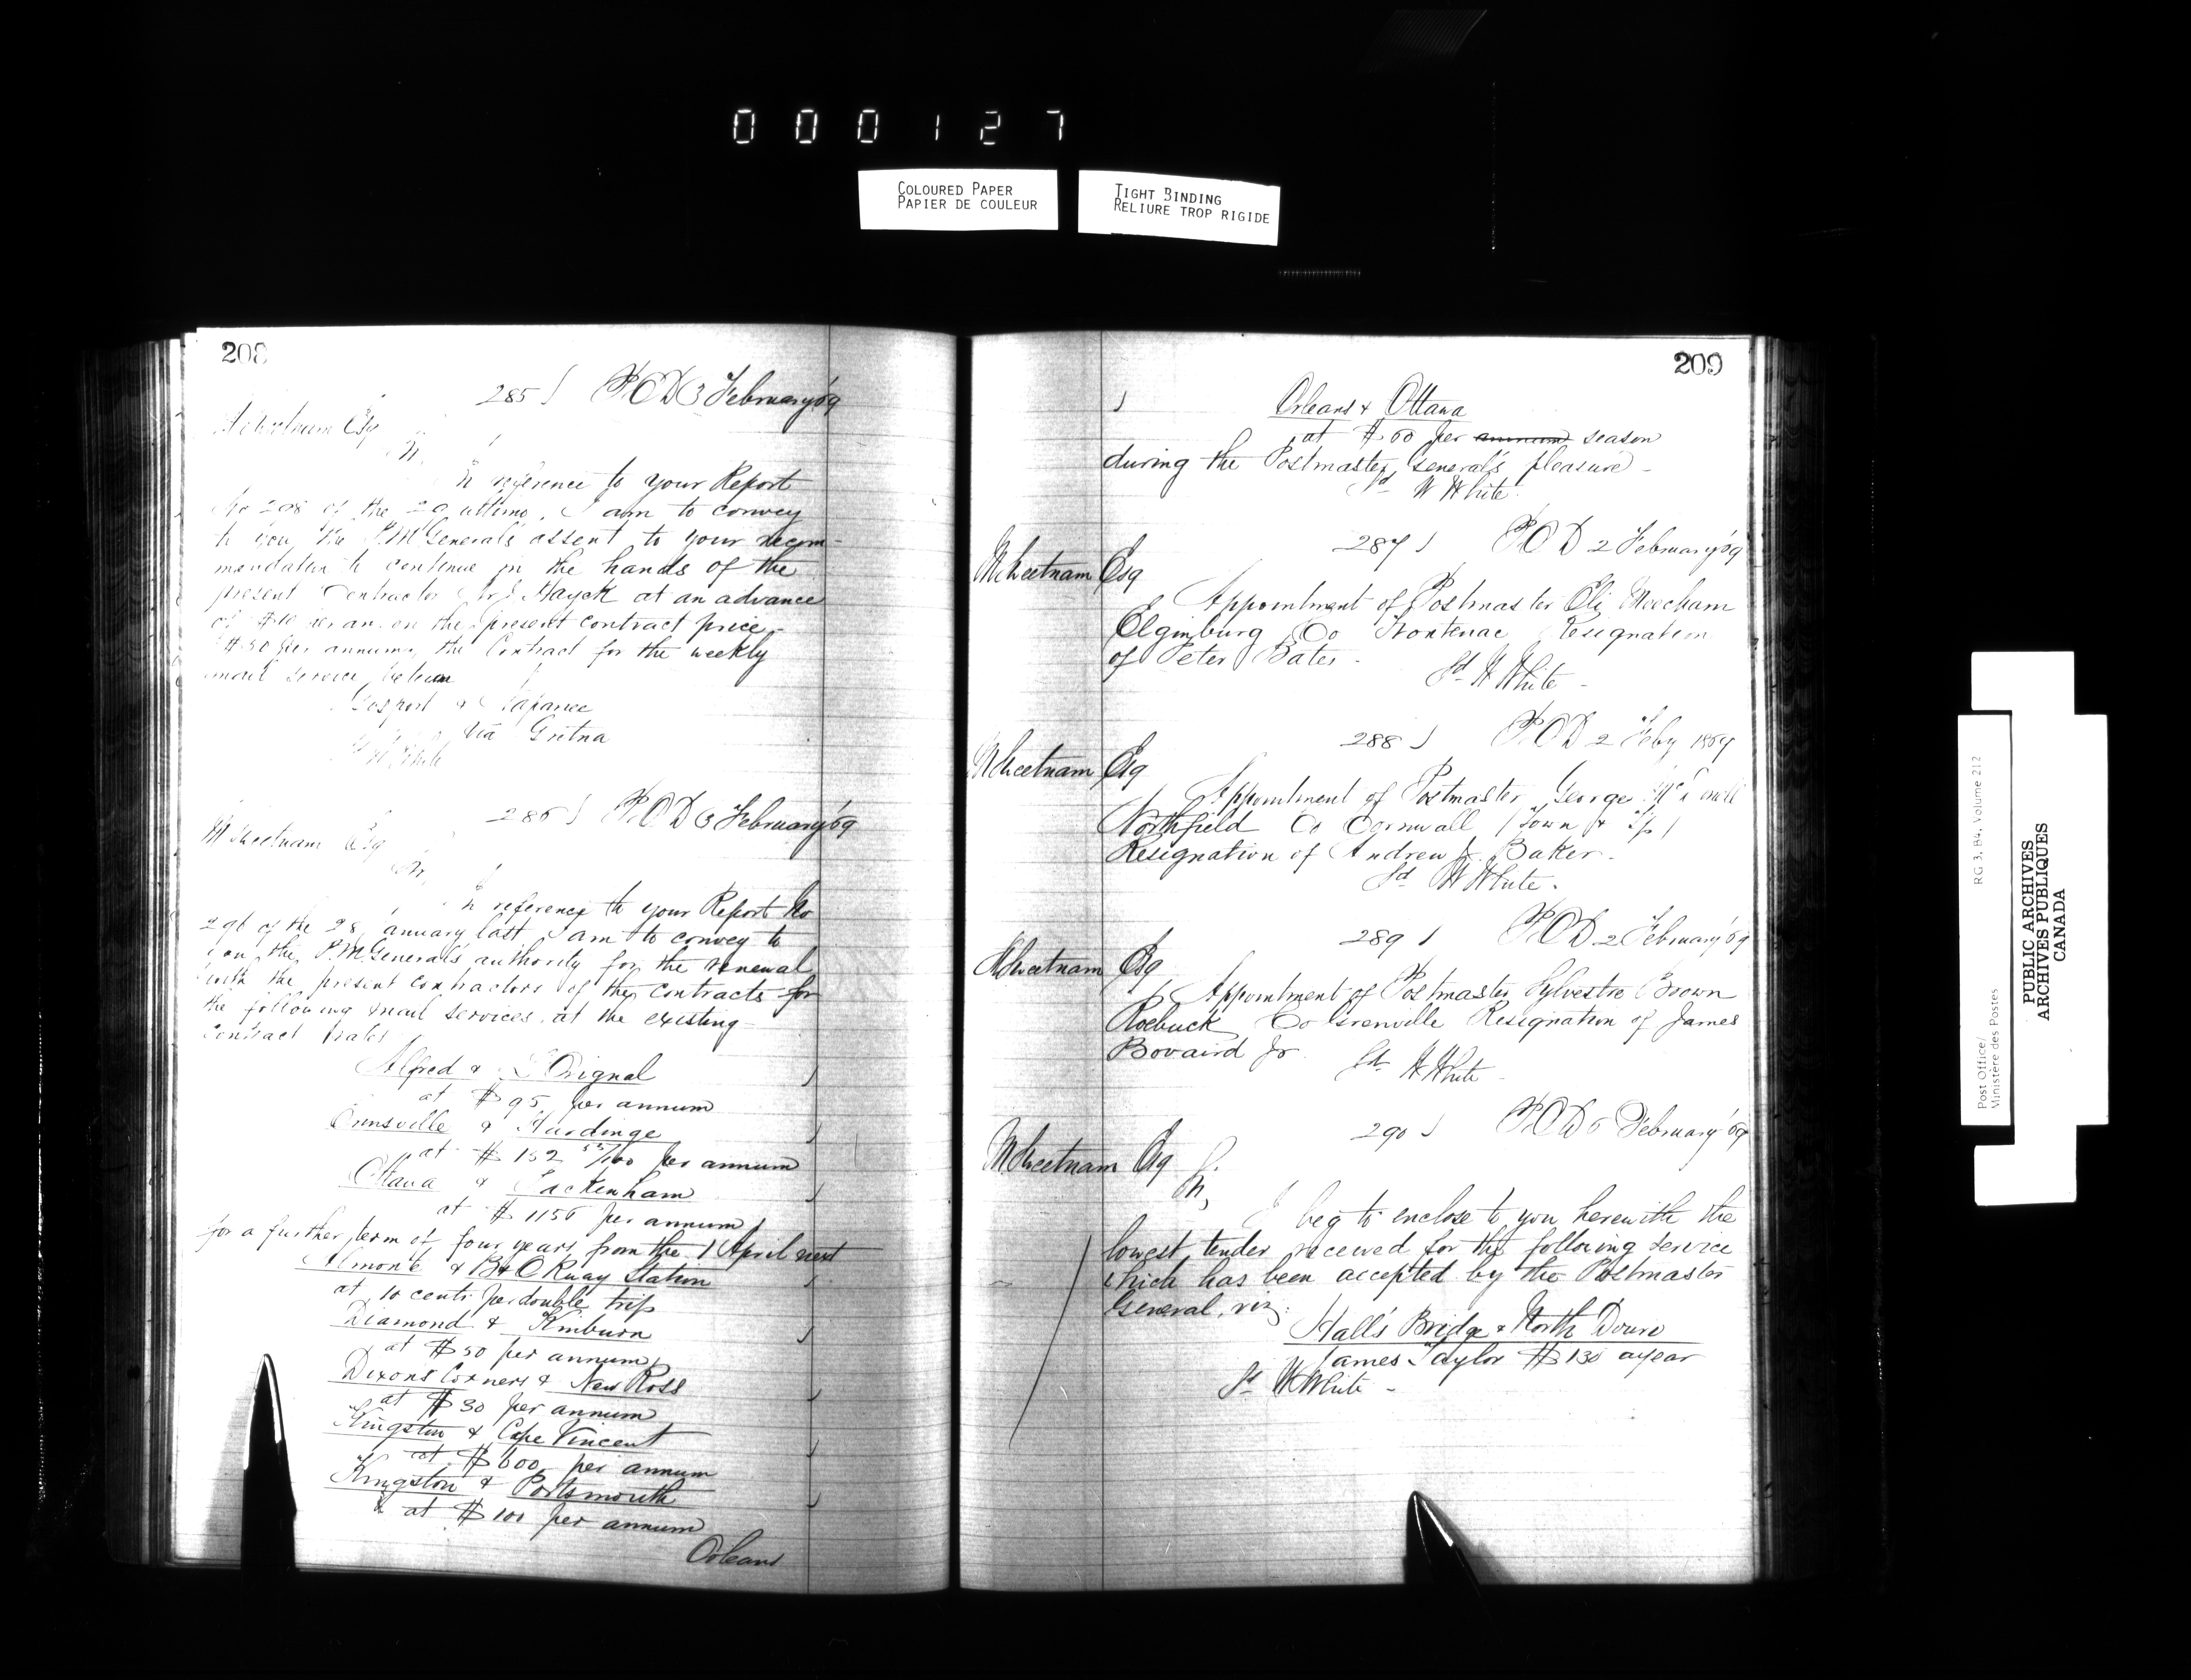 000127
COLOURED PAPER
PAPIER DE COULEUR
TIGHT BINDING
RELIURE TROP RIGIDE
208
285 P.O.D 3 February '69
M Sweetnam Esq
Sir,
In reference to your Report
No 298 of the 29 ultimo, I am to convey
to you the P.M. General's assent to your recom-
mendation to continue in the hands of the
present Contractor Huyck at an advance
of $10 per an. on the present contract price
$50 per annum, the Contract for the weekly
mail Service between
Gosport & Napanee
via Gretna
Sd W White
286 P.O.D 3 February '69
M Sweetnam Esq
Sir,
In reference to your Report No
296 of the 28 January last I am to convey to
you the P.M. General's authority for the renewal
with the present contractors of the contracts for
the following mail services at the existing
contract rates
Alfred & L'Orignal
at $95 per annum
Ormsville & Hardinge
at $152 per annum
Ottawa & Packenham
at $1156 per annum
for a further term of four years from the 1 April next
Almonte & B&O Rway Station
at 10 cents per double trip
Diamond & Kinburn
at $50 per annum
Dixons Corners & New Ross
at $30 per annum
Kingston & Cape Vincent
at $600 per annum
Kingston & Portsmouth
& at $100 per annum
Orleans
209
Orleans & Ottawa
at $60 per annum season
during the Postmaster General's pleasure -
Sd W White
287 P.O.D 2 February '69
M Sweetnam Esq
Appointment of Postmaster Eli Meecham
Elginburg Co Frontenac Resignation
of Peter Bates -
Sd W White -
288 P.O.D 2 Feby 1869
M Sweetnam Esq
Appointment of Postmaster George
Northfield Co Cornwall (Town & T/p)
Resignation of Andrew J. Baker.
Sd W White.
289 P.O.D 2 February '69
M Sweetnam Esq
Appointment of Postmaster Sylvestre Brown
Roebuck Co Grenville Resignation of James
Bovaird Jr
Sd W White
290 P.O.D 5 February '69
M Sweetnam Esq
Sir,
I beg to enclose to you herewith the
lowest tender received for the following service
which has been accepted by the Postmaster
General, viz:
Hall's Bridge & North Douro
James Taylor $130 a year
Sd W White -
Post Office/
Ministère des Postes
RG 3, B4, Volume 212
PUBLIC ARCHIVES
ARCHIVES PUBLIQUES
CANADA